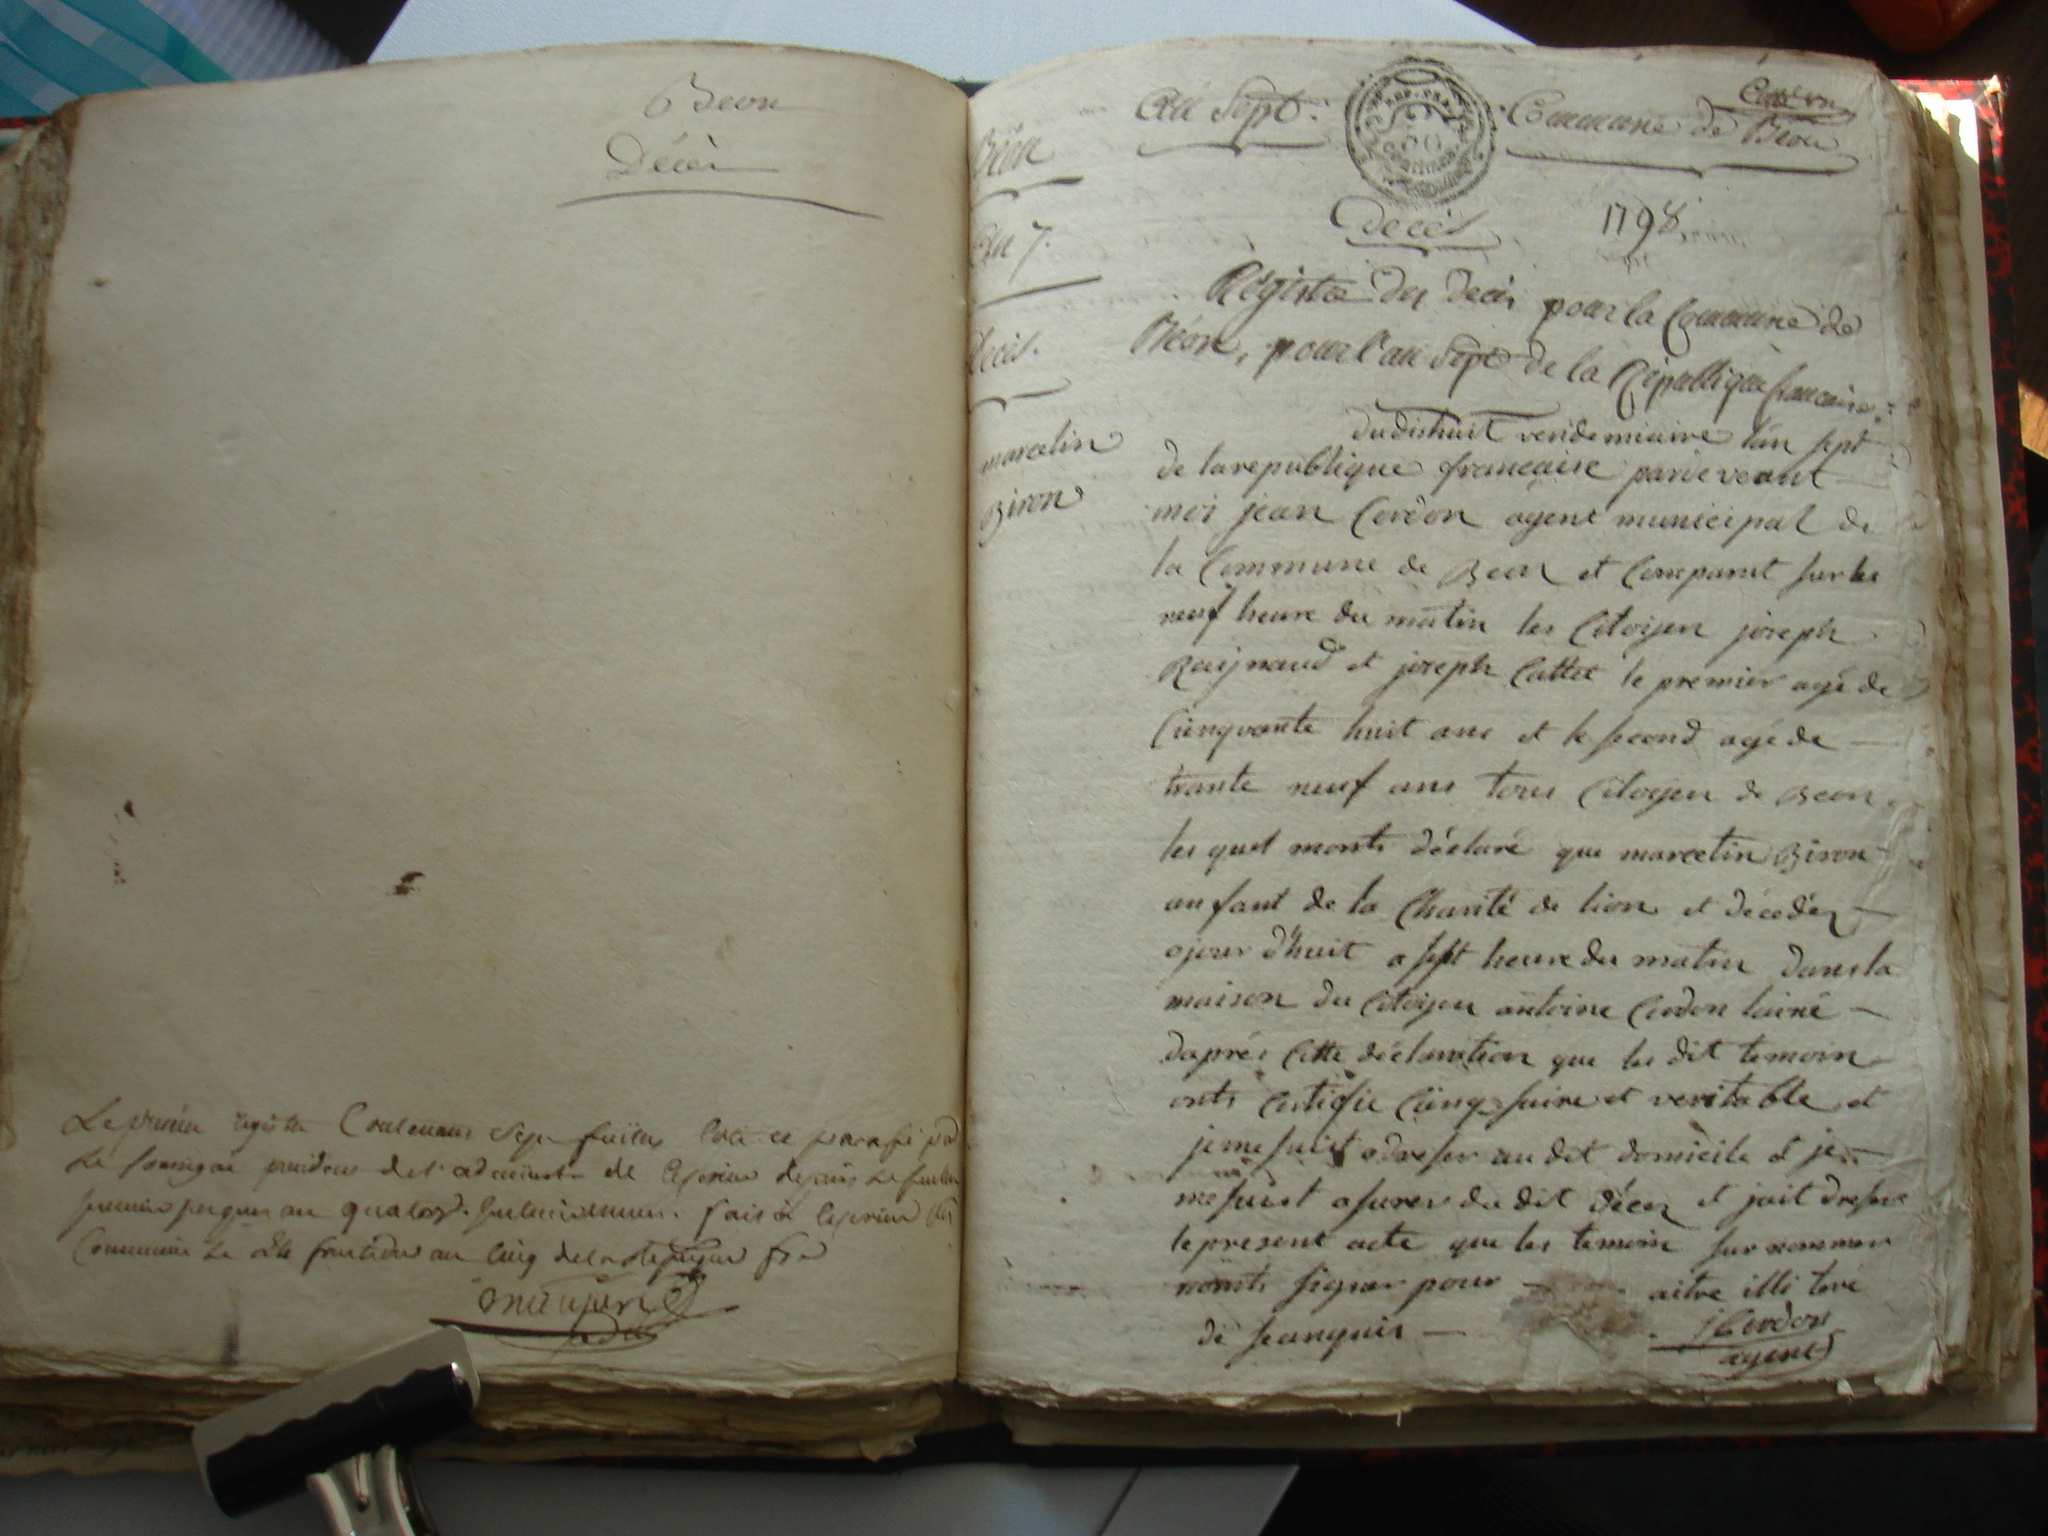 Beon
Décès
Le présent registre Contenant sept feuillets Coté et paraphé par
le soussigné président de l'administ. de Ceyzerieu depuis le feuillet
premier jusques au quatorz. fait à Ceyzerieu
Commune le fructidor an Cinq de la République fse
An Sept.
Commune de Béon
Béon
An 7.
Décès.
Decès
1798
Régistre des decès pour la Commune de
Béon, pour l'an Sept de la République francaise.
marcelin
Biron
du dishuit vendemiaire l'an sept
de la republique francaise par devant
moi jean Cordon agent municipal de
la Commune de Beon et Comparut sur les
neuf heure du matin les Citoyen joseph
Raijnaud et joseph Cattet le premier agé de
Cinquante huit ans et le second agé de
trante neuf ans tous Citoyen de Beon
les quel monts déclaré que marcelin Biron
anfant de la Charité de lion et décedéz
ojour d'huit a sept heure du matin dans la
maison du Citoyen antoine Cordon lainé
daprés Cette déclaration que les dit temoin
onts Certifie et veritable et
je me suit adresser au dit domicile et je
me suit asurer du dit décez et jait dresse
le present acte que les temoin sur nommer
nonts signer pour aitre illi teré
de seanquis
j Cordon
agent